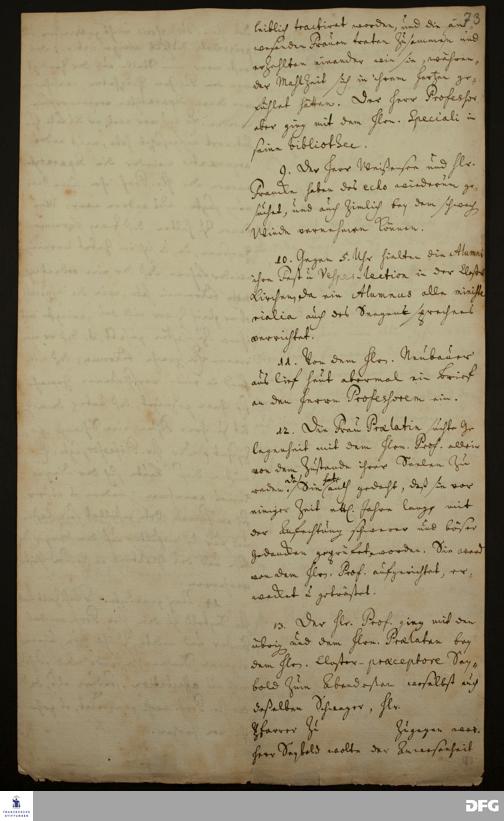 73
leiblich tractirt worden, und die an-
wesenden Frauen traten zusammen und
erzehlten einander wie sie, währen-
der Mahlzeit sich in ihrem Herzen ge-
fühlet hätten. Der Herr Professor
aber ging mit dem Hrn. Speciali in
seine bibliothec.
9. Der Herr Weißensee und Hr.
Francke haben das echo wiederum ge-
suchet, und auch zimlich bey dem schwach
Winde vernehmen können.
10. Gegen 5. Uhr hielten die Alumni
ihre Vesper-lection in der Closter
Kirchen, da ein Alumnus alle ministe
rialia auch das Seegen sprechens
verrichtet.
11. Von dem Hrn. Neubauer
aus lief heut abermal ein Brief
an den Herrn Professorem ein.
12. Die Frau Prælatin suchte Ge-
legenheit mit dem Hrn. Prof. allein
von dem Zustande ihrer Seelen zu
reden. Sie hatte gedacht, daß sie vor
einiger Zeit etl. Jahre lang mit
der Anfechtung schwerer und böser
Gedancken geprüfet worden. Sie ward
von dem Hrn. Prof. aufgerichtet, er-
wecket u. getröstet.
13. Der Hr. Prof. ging mit den
übrig und dem Hrn. Prælaten bey
dem Hrn. Closter-præceptore Sey-
bold zum Abendessen woselbst auch
deßelben Schwager, Hr.
Pfarrer zu zugegen war.
Herr Seybold wolte der Anwesenheit
FRANCKESCHE STIFTUNGEN
DFG